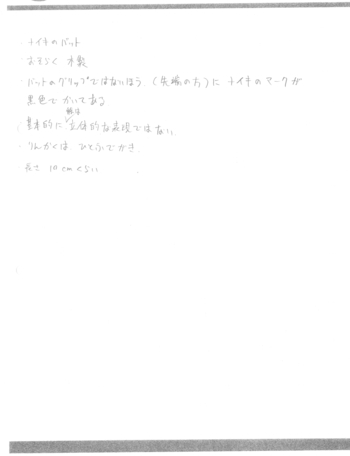 ・ナイキのバット
・おそらく 木製
・バットのグリップではないほう (先端の方)に ナイキのマークが
黒色で かいてある
・基本的に 立体的な表現ではない
・りんかくは ひとふでかき
長さ 10cmくらい